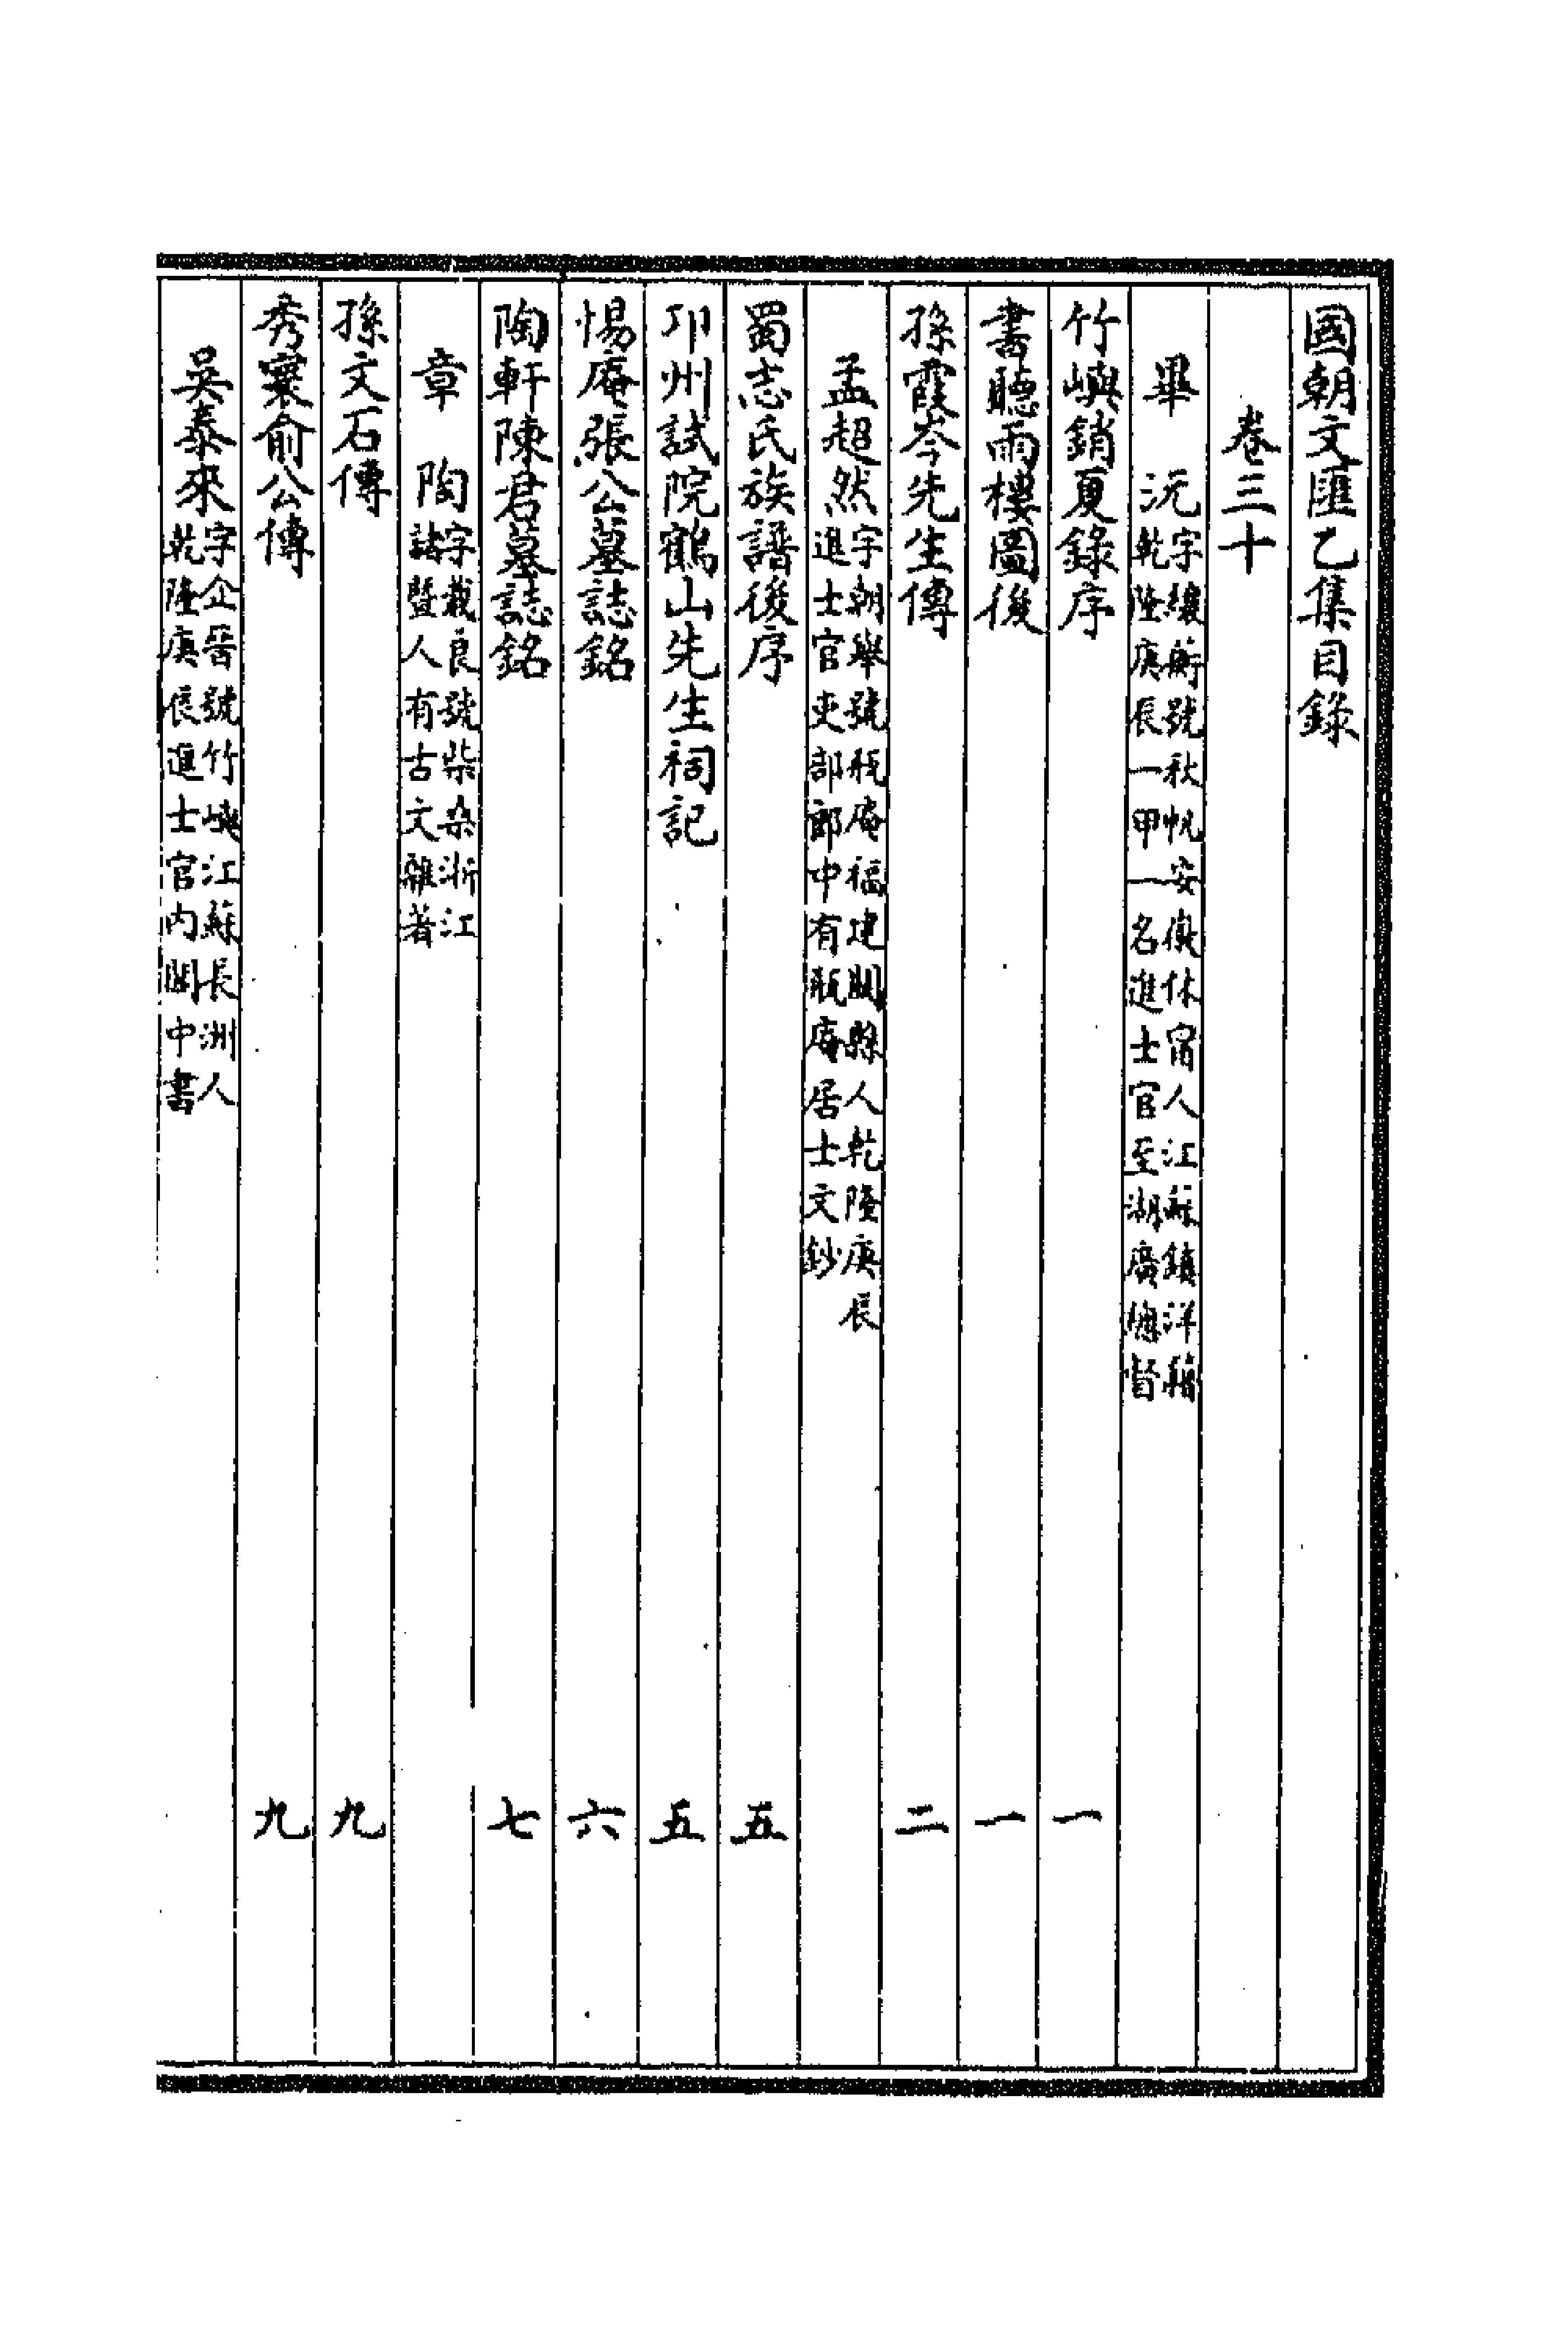 國朝文匯乙集目錄
卷三十
畢　沅字纕蘅號秋帆安徽休甯人江蘇鎮洋籍
乾隆庚辰一甲一名進士官至湖廣總督
竹嶼銷夏錄序　一
書聽雨樓圖後　一
孫霞岑先生傳　二
孟超然字朝舉號瓶庵福建閩縣人乾隆庚辰
進士官吏部郎中有瓶庵居士文鈔
蜀志氏族譜後序　五
邛州試院鶴山先生祠記　五
惕庵張公墓誌銘　六
陶軒陳君墓誌銘　七
章　陶字載良號柴桑浙江
諸暨人有古文雜著
孫文石傳　九
秀寰俞公傳　九
吳泰來字企晉號竹嶼江蘇長洲人
乾隆庚辰進士官內閣中書